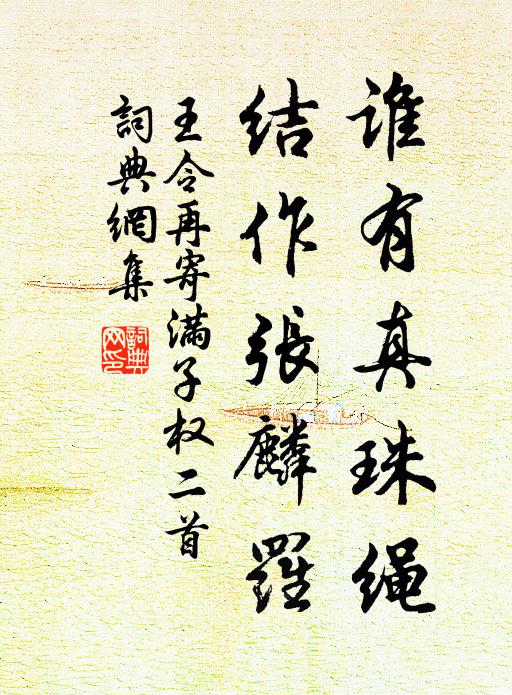 谁有真珠绳
结作張麟羅
王令再寄满子权二首
詞典網集
詞典网印